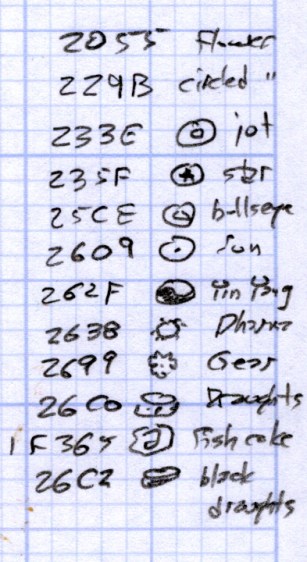 2055 Flower
229B circled "
233E jot
235F star
25CE bullseye
2609 Sun
262F Yin Yang
2638 Dharma
2699 Gear
26C0 Draughts
1F365 Fish cake
26C2 black
draughts